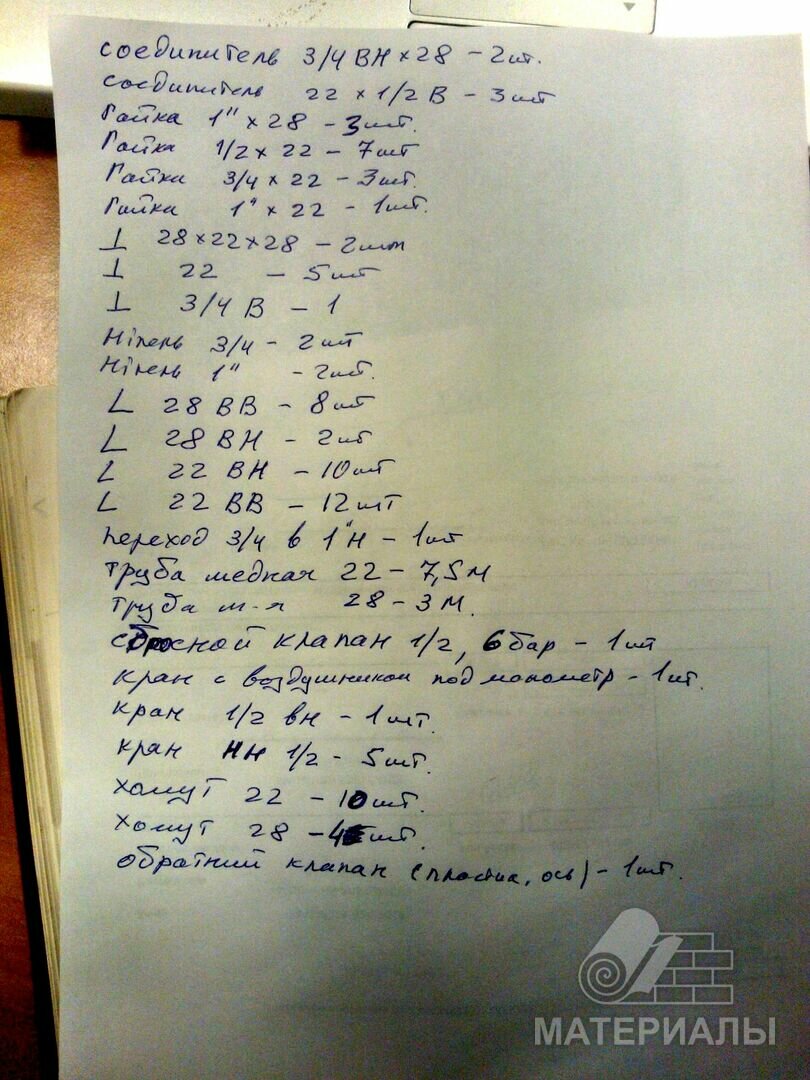 соединитель 3/4 ВН х 28 - 2 шт.
соединитель 22 х 1/2 В - 3 шт
Гайка 1" х 28 - 3 шт.
Гайка 1/2 х 22 - 7 шт
Гайка 3/4 х 22 - 3 шт.
Гайка 1" х 22 - 1 шт.
⊥ 28 х 22 х 28 - 2 шт
⊥ 22 - 5 шт
⊥ 3/4 В - 1
Ніпель 3/4 - 2 шт
Ніпель 1" - 2 шт.
L 28 ВВ - 8 шт
L 28 ВН - 2 шт
L 22 ВН - 10 шт
L 22 ВВ - 12 шт
переход 3/4 в 1" Н - 1 шт
труба медная 22 - 7,5 м
труба м-я 28 - 3 м.
сбросной клапан 1/2, 6 бар - 1 шт
кран с воздушником под монометр - 1 шт.
кран 1/2 вн - 1 шт.
кран нн 1/2 - 5 шт.
хомут 22 - 10 шт.
хомут 28 - шт.
обратний клапан ( ось) - 1 шт.
МАТЕРИАЛЫ